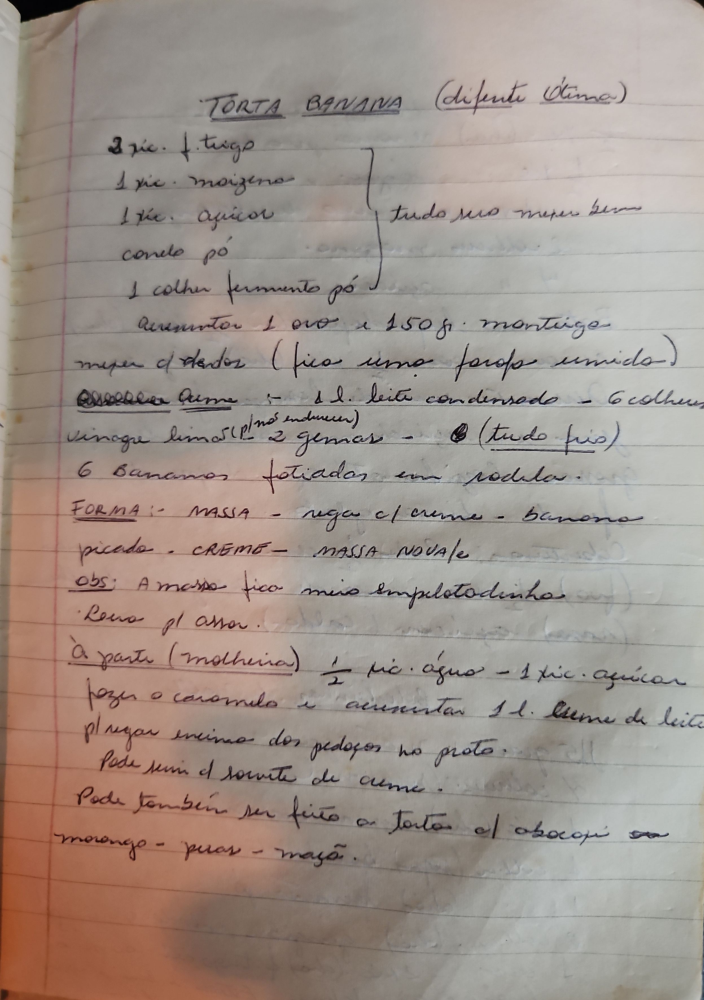 TORTA BANANA (diferente ótima)
2 xic. f. trigo
1 xic. maizena
1 xic. açúcar
canela pó
1 colher fermento pó
tudo seco mexer bem
acrescentar 1 ovo e 150 gr. manteiga
mexer c/ dedos (fica uma farofa umida)
Creme :- 1 l. leite condensado - 6 colheres
vinagre limão (p/ não endurecer) - 2 gemas - (tudo frio)
6 Bananas fatiadas em rodela.
FORMA :- MASSA - rega c/ creme - banana
picada - CREME - MASSA NOVA/e
obs: A massa fica meio empelotadinha
Leva p/ assar.
À parte (molheira) 1/2 xic. água - 1 xic. açúcar
fazer o caramelo e acrescentar 1 l. creme de leite
p/ regar encima dos pedaços no prato.
Pode servir c/ sorvete de creme.
Pode também ser feito a torta c/ abacaxi
morango - peras - maçã.